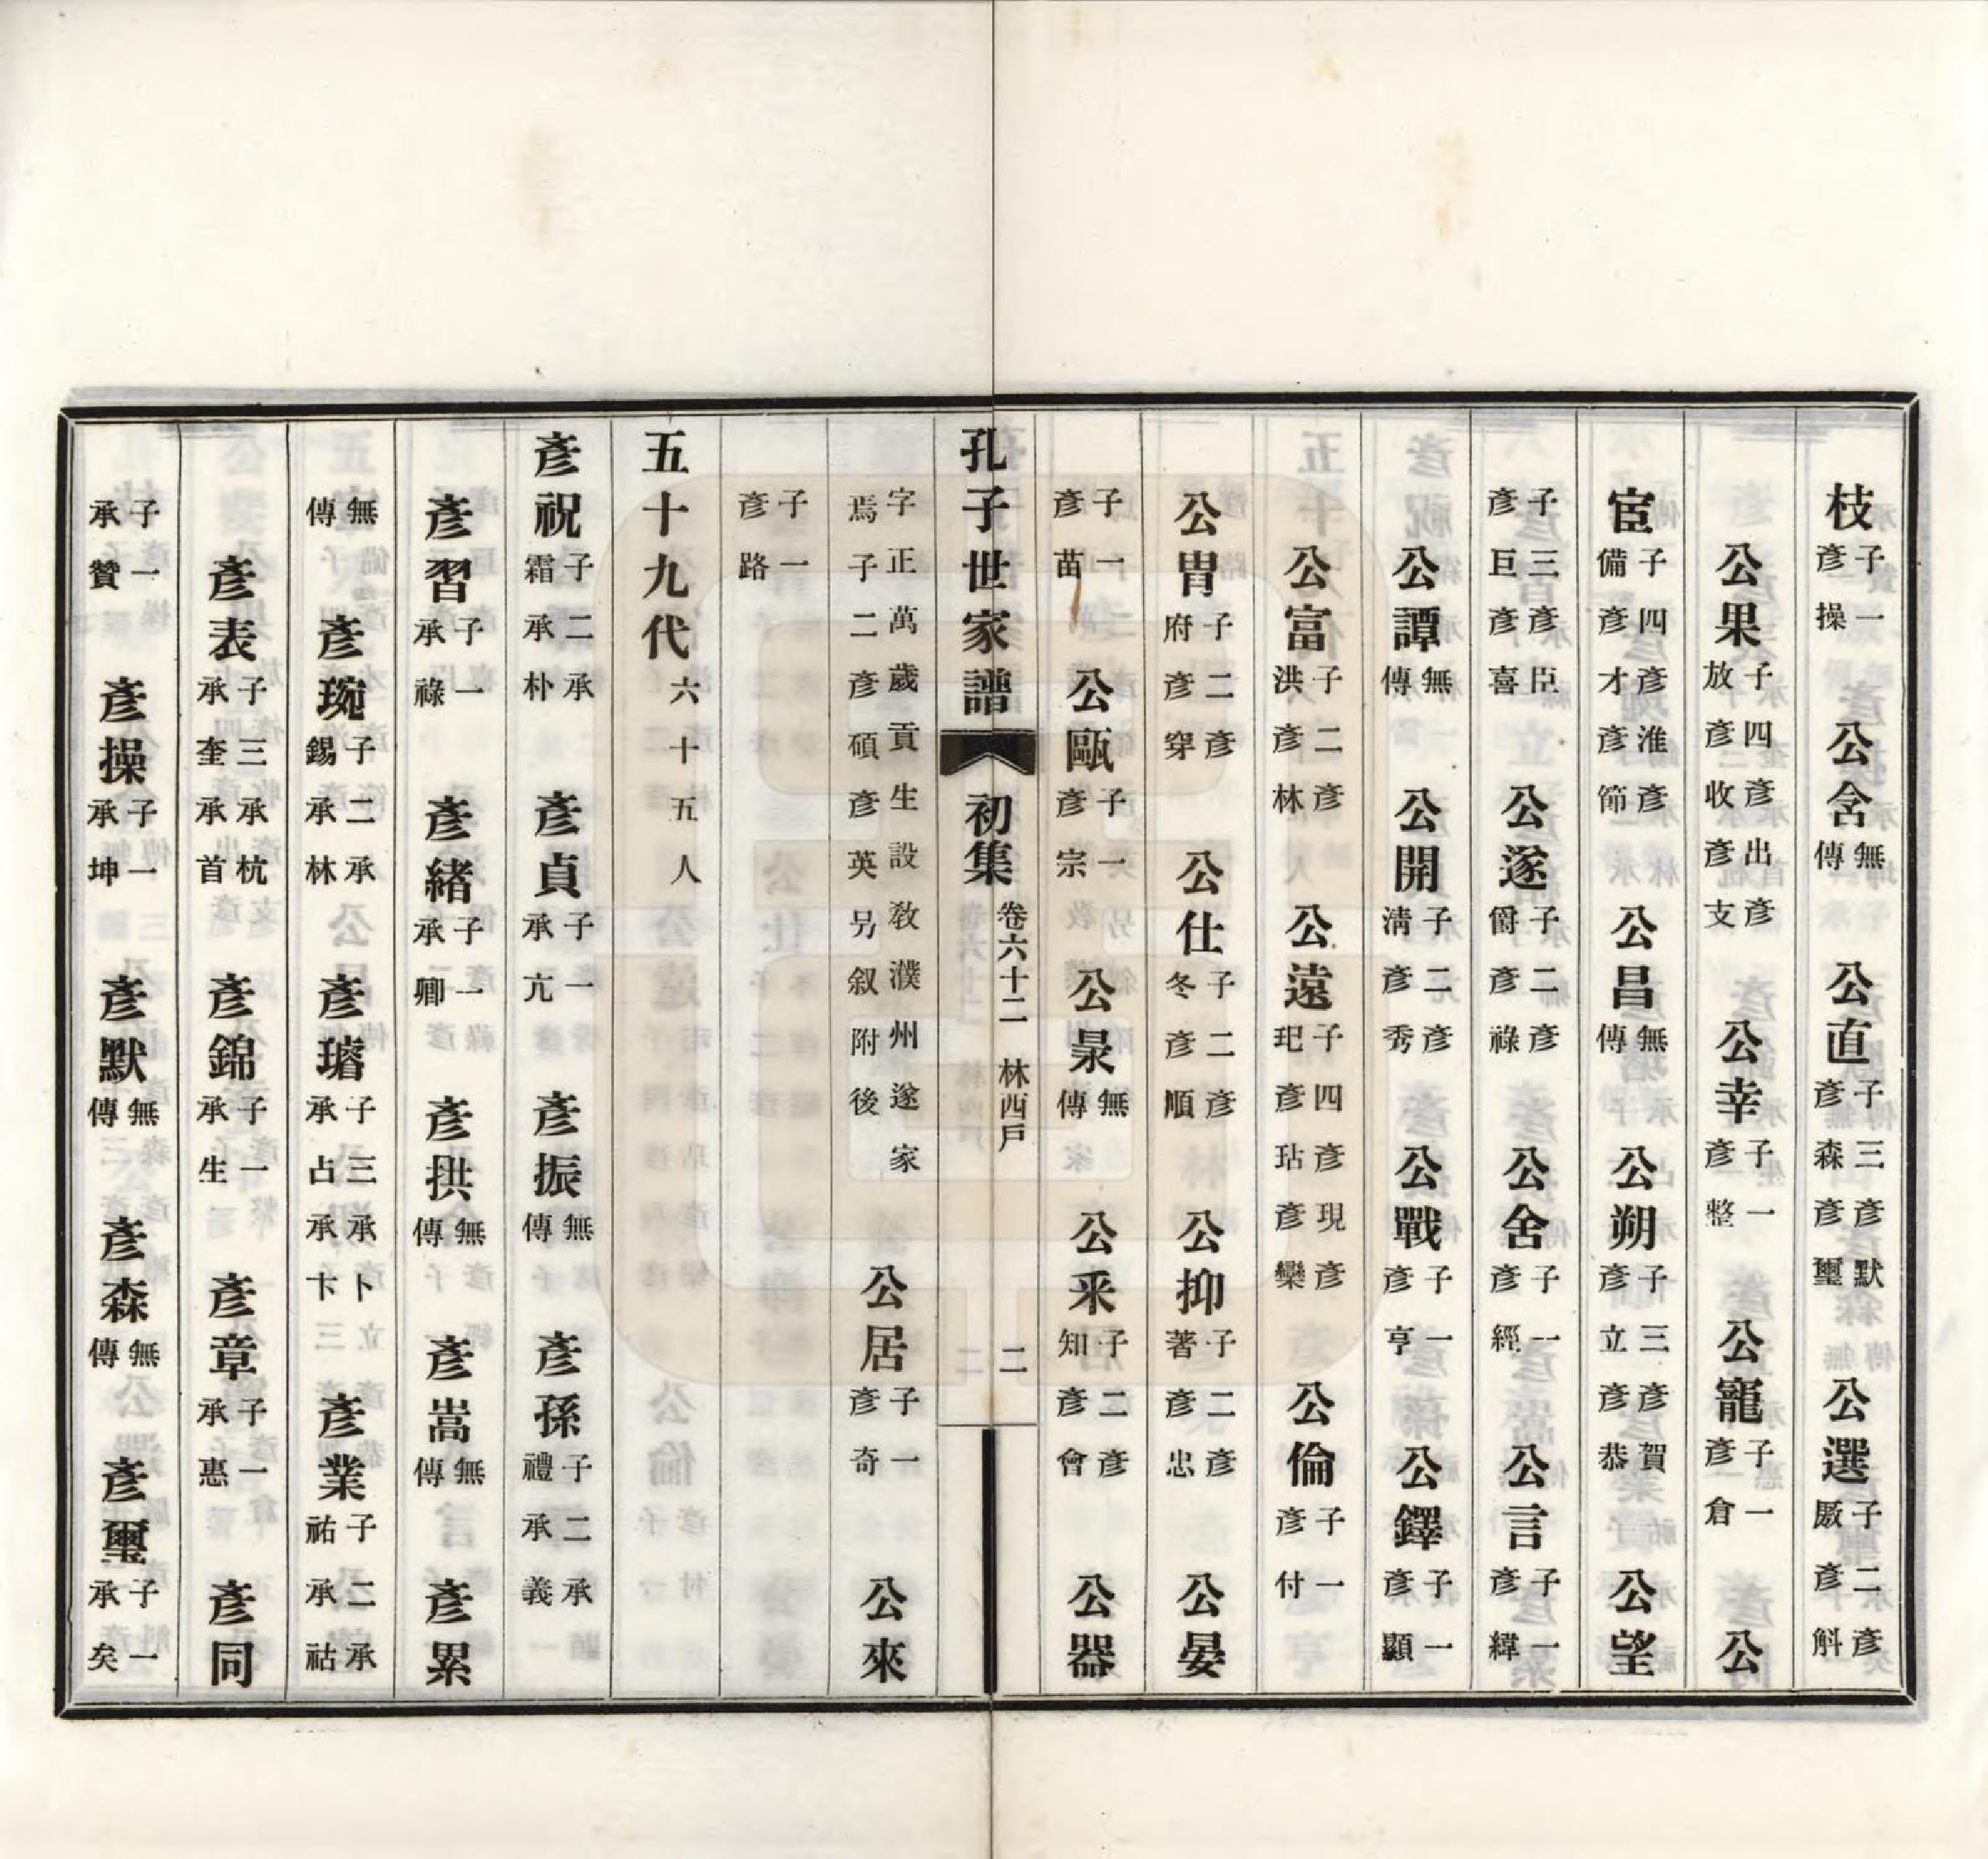 枝子一彥操 公含無傳 公直子三彥默彥森彥璽 公選子二彥斛彥厰
公果子四彥出彥放彥收彥支 公幸子一彥整 公寵子一彥倉 公
宦子四彥淮彥備彥才彥節 公昌無傳 公朔子三彥賀彥立彥恭 公望
子三彥臣彥巨彥喜 公遂子二彥爵彥祿 公舍子一彥經 公言子一彥緯
公譚無傳 公開子二彥清彥秀 公戰子一彥亨 公鐸子一彥顯
公富子二彥洪彥林 公遠子四彥現彥玘彥玷彥欒 公倫子一彥付
公冑子二彥府彥穿 公仕子二彥冬彥順 公抑子二彥著彥忠 公晏
子一彥苗 公甌子一彥宗 公杲無傳 公釆子二彥知彥會 公器
孔子世家譜 初集 卷六十二 林西戶 二
字正萬歲貢生設敎濮州遂家焉子二彥碩彥英另叙附後 公居子一彥奇 公來
子一彥路
五十九代六十五人
彥祝子二承霜承朴 彥貞子一承亢 彥振無傳 彥孫子二承禮承義
彥習子一承祿 彥緒子一承卿 彥拱無傳 彥嵩無傳 彥累
無傳 彥琬子二承錫承林 彥璿子三承卜承占承卞 彥業子二承祐承祜
彥表子三承杭承奎承首 彥錦子一承生 彥章子一承惠 彥同
子一承贊 彥操子一承坤 彥默無傳 彥森無傳 彥璽子一承矣